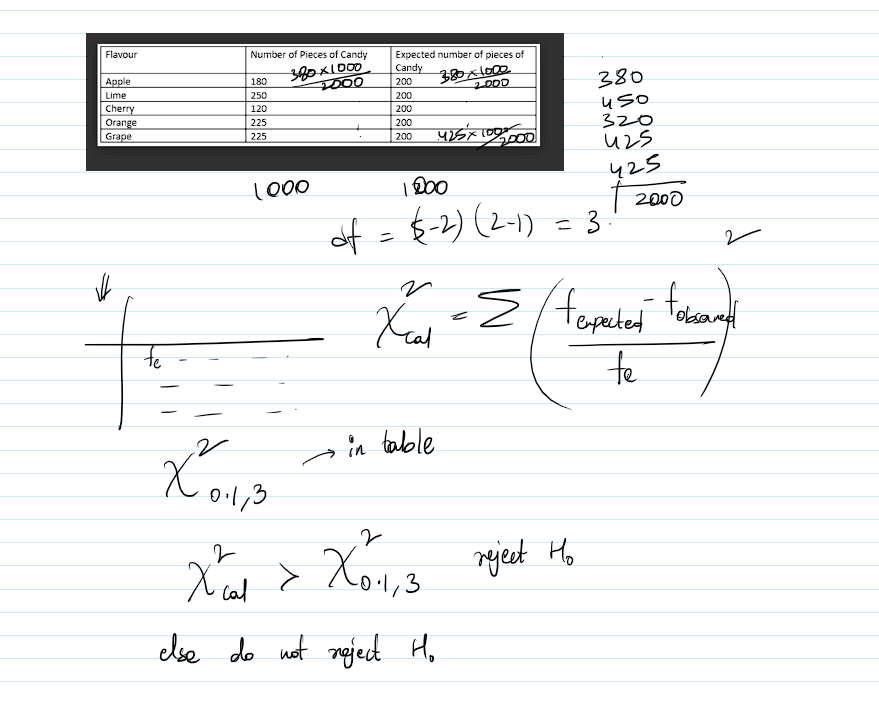 Flavour Number of Pieces of Candy Expected number of pieces of Candy
Apple 180 380×1000/2000 200 380×1000/2000
Lime 250 200
Cherry 120 200
Orange 225 200
Grape 225 200 425×1000/2000
380
450
320
425
425
2000
1000 1000
df = (5-2) (2-1) = 3.
χ²cal = Σ ( (f expected - f observed) / fe )²
fe
χ² 0.1,3 → in table
χ²cal > χ² 0.1,3 reject H₀
else do not reject H₀